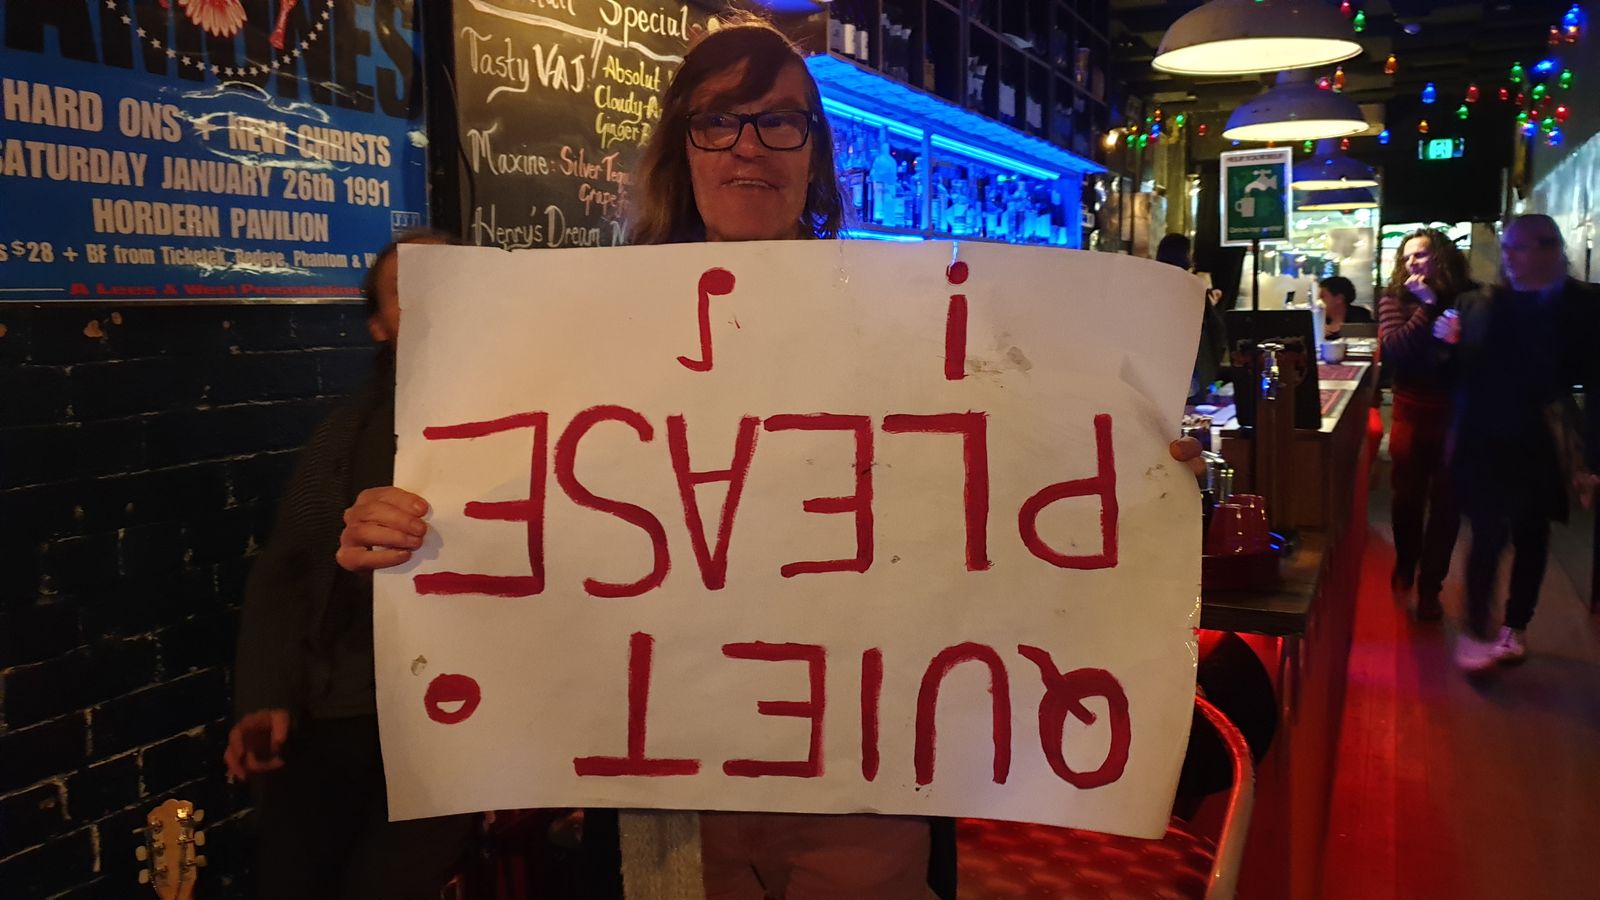 RAMONES
HARD ONS + NEW CHRISTS
SATURDAY JANUARY 26th 1991
HORDERN PAVILION
$28 + BF from Ticketek, Redeye, Phantom &
A Lees & West Presentation
Specials
Tasty VAJ:
Absolut
Cloudy
Ginger
Maxine: Silver
Henry's Dream
HELP YOURSELF
QUIET
PLEASE
!